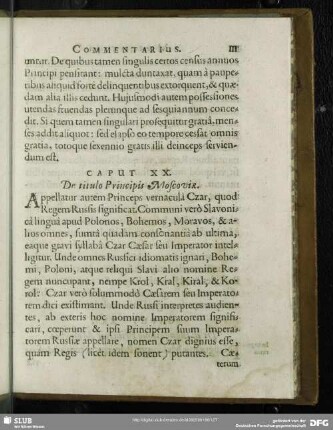 COMMENTARIUS. III
untur. De quibus tamen singulis certos census annuos
Principi pensitant: mulcta duntaxat, quam à paupe-
ribus aliquid forte delinquentibus extorquent, & quæ-
dam alia illis cedunt. Hujusmodi autem possessiones
utendas fruendas plerunque ad sesquiannum conce-
dit. Si quem tamen singulari prosequitur gratiâ, men-
ses addit aliquot: sed eo ipso tempore cessat omnis
gratia, totoque sexennio gratis illi deinceps servien-
dum est.
CAPUT XX.
De titulo Principis Moscoviæ.
Appellatur autem Princeps vernaculâ Czar, quod
Regem Russis significat. Communi verò Slavoni-
câ linguâ apud Polonos, Bohemos, Moravos, & a-
lios omnes, sumtâ quâdam consonantiâ ab ultima,
eaque gravi syllabâ Czar Cæsar seu Imperator intel-
ligitur. Unde omnes Russici idiomatis ignari, Bohe-
mi, Poloni, atque reliqui Slavi alio nomine Re-
gem nuncupant, nempe Krol, Kral, Kiral, & Ko-
rol: Czar verò solummodò Cæsarem seu Imperato-
rem dici existimant. Unde Russi interpretes audien-
tes, ab exteris hoc nomine Imperatorem signifi-
cari, cœperunt & ipsi Principem suum Impera-
torem Russiæ appellare, nomen Czar dignius esse,
quàm Regis (licèt idem sonent) putantes. Cæ-
terum
SLUB
Wir führen Wissen.
gefördert von der
Deutschen Forschungsgemeinschaft
DFG